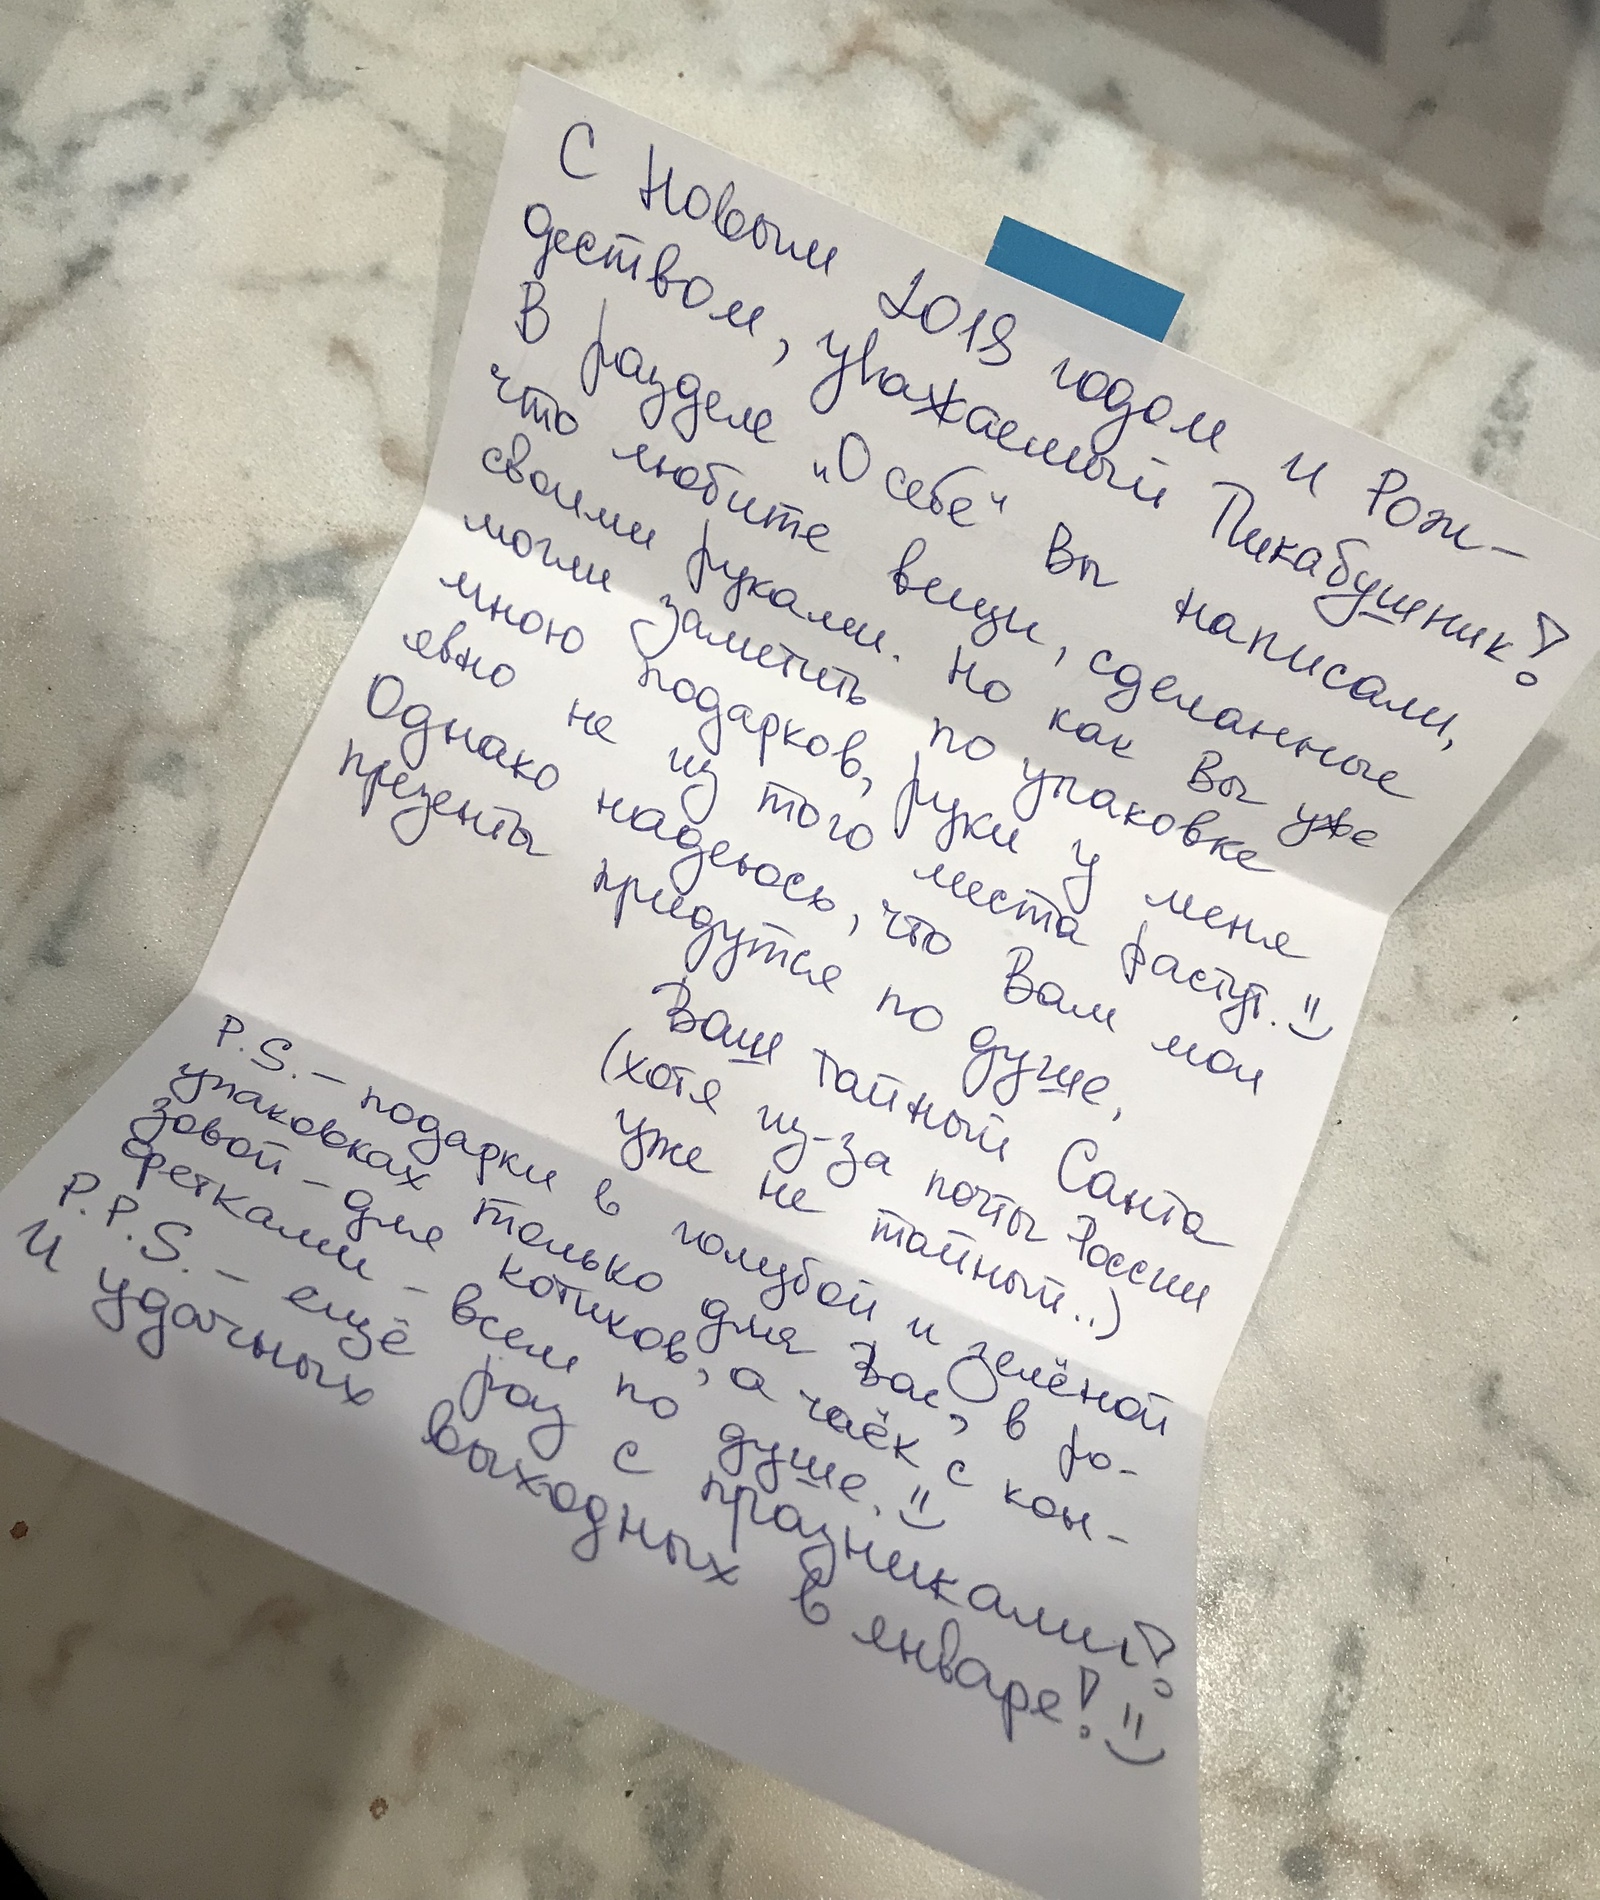 С Новым 2019 годом и Рож-
деством, уважаемый Пикабушник!
В разделе "О себе" Вы написали,
что любите вещи, сделанные
своими руками. Но как Вы уже
могли заметить по упаковке
мною подарков, руки у меня
явно не из того места растут. :)
Однако надеюсь, что Вам мои
презенты придутся по душе,
Ваш Тайный Санта
(хотя из-за почты России
уже не тайный..)
P.S. – подарки в голубой и зелёной
упаковках только для Вас, в ро-
зовой – для котиков, а чаёк с кон-
фетками – всем по душе. :)
P.P.S. – ещё раз с празниками!
И удачных выходных в январе! :)